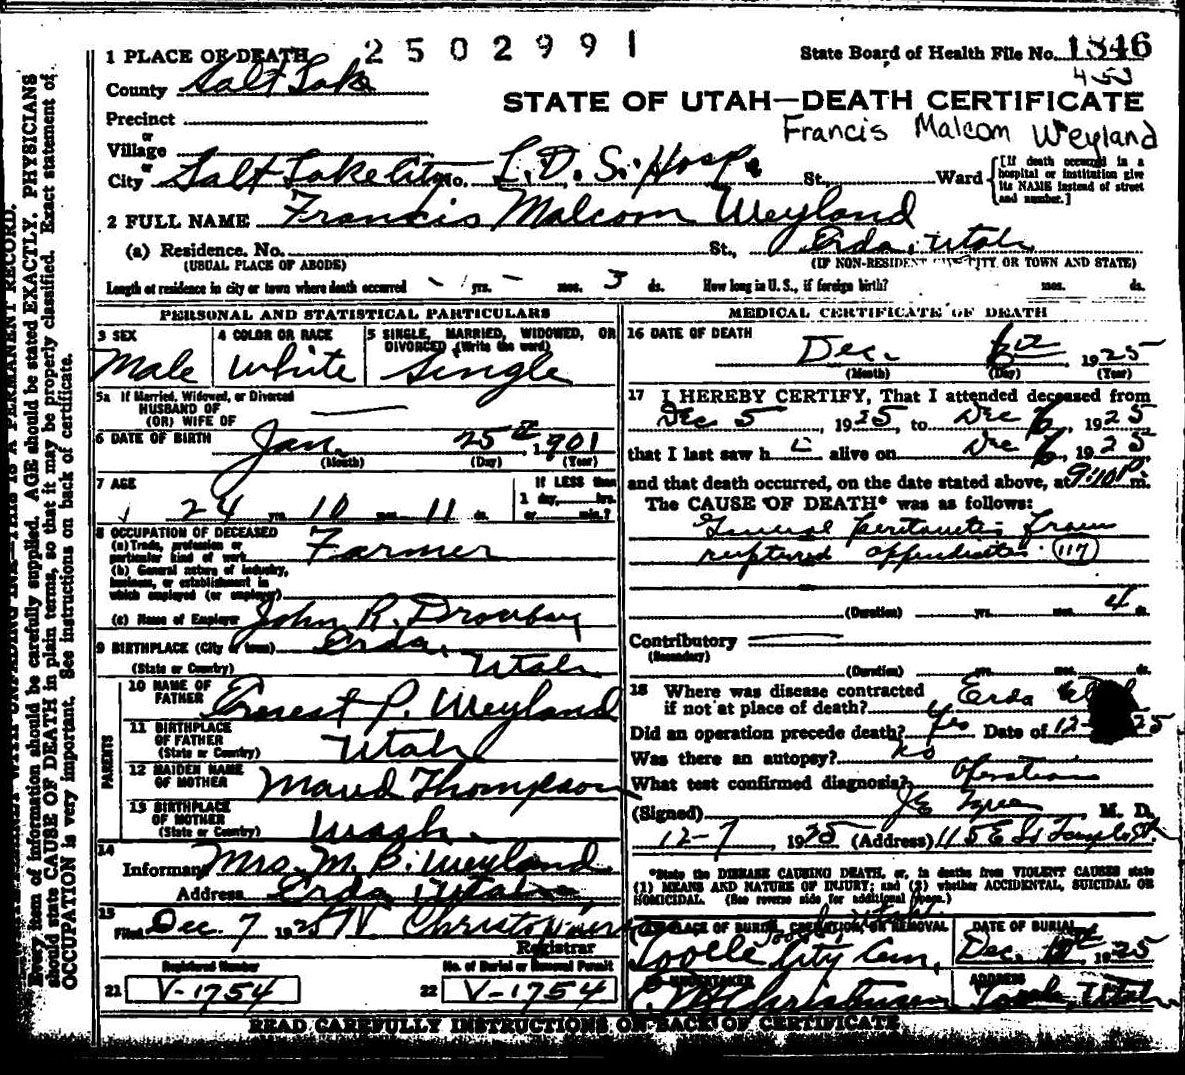 2502991
State Board of Health File No. 1846
453
1 PLACE OF DEATH
County Salt Lake
STATE OF UTAH—DEATH CERTIFICATE
Francis Malcom Weyland
Precinct
or
Village
or
City Salt Lake City No. L.D.S. Hosp. St. Ward
[If death occurred in a
hospital or institution give
its NAME instead of street
and number.]
2 FULL NAME Francis Malcom Weyland
(a) Residence. No. St., Erda, Utah
(USUAL PLACE OF ABODE) (IF NON-RESIDENT GIVE CITY OR TOWN AND STATE)
Length of residence in city or town where death occurred - yrs. - mos. 3 ds. How long in U. S., if foreign birth? mos. ds.
PERSONAL AND STATISTICAL PARTICULARS
3 SEX
Male
4 COLOR OR RACE
White
5 SINGLE, MARRIED, WIDOWED, OR
DIVORCED (Write the word)
Single
5a If Married, Widowed, or Divorced
HUSBAND OF
(OR) WIFE OF
6 DATE OF BIRTH Jan. 25th, 1901
(Month) (Day) (Year)
7 AGE
24 yrs. 10 mos. 11 ds.
If LESS than
1 day, hrs.
or min.?
8 OCCUPATION OF DECEASED
(a) Trade, profession or
particular kind of work Farmer
(b) General nature of industry,
business, or establishment in
which employed (or employer)
(c) Name of Employer John R. Droubay
9 BIRTHPLACE (City or town) Erda,
(State or Country) Utah
PARENTS
10 NAME OF
FATHER Ernest P. Weyland
11 BIRTHPLACE
OF FATHER
(State or Country) Utah
12 MAIDEN NAME
OF MOTHER Maud Thompson
13 BIRTHPLACE
OF MOTHER
(State or Country) Wash.
14
Informant Mrs. M. B. Weyland
Address Erda, Utah
15
Filed Dec. 7 1925
Registrar
Registered Number
21 V-1754
No. of Burial or Removal Permit
22 V-1754
MEDICAL CERTIFICATE OF DEATH
16 DATE OF DEATH
Dec. 6th 1925
(Month) (Day) (Year)
17 I HEREBY CERTIFY, That I attended deceased from
Dec 5, 1925, to Dec 6, 1925
that I last saw h alive on Dec 6, 1925
and that death occurred, on the date stated above, at 9:10 P m.
The CAUSE OF DEATH* was as follows:
General peritonitis from
ruptured appendicitis (117)
(Duration) yrs. mos. 4 ds.
Contributory
(Secondary)
(Duration) yrs. mos. ds.
18 Where was disease contracted
if not at place of death? Erda
Did an operation precede death? Yes Date of 12- 25
Was there an autopsy? no
What test confirmed diagnosis? Operation
(Signed) M. D.
12-7 1925 (Address) 115 E So Temple St.
*State the DISEASE CAUSING DEATH, or, in deaths from VIOLENT CAUSES state
(1) MEANS AND NATURE OF INJURY; and (2) whether ACCIDENTAL, SUICIDAL OR
HOMICIDAL. (See reverse side for additional space.)
PLACE OF BURIAL, CREMATION, OR REMOVAL
Tooele, Utah.
Tooele City Cem.
DATE OF BURIAL
Dec. 1925
UNDERTAKER
ADDRESS
Tooele, Utah
READ CAREFULLY INSTRUCTIONS ON BACK OF CERTIFICATE
Every item of information should be carefully supplied. AGE should be stated EXACTLY. PHYSICIANS
should state CAUSE OF DEATH in plain terms, so that it may be properly classified. Exact statement of
OCCUPATION is very important. See instructions on back of certificate.